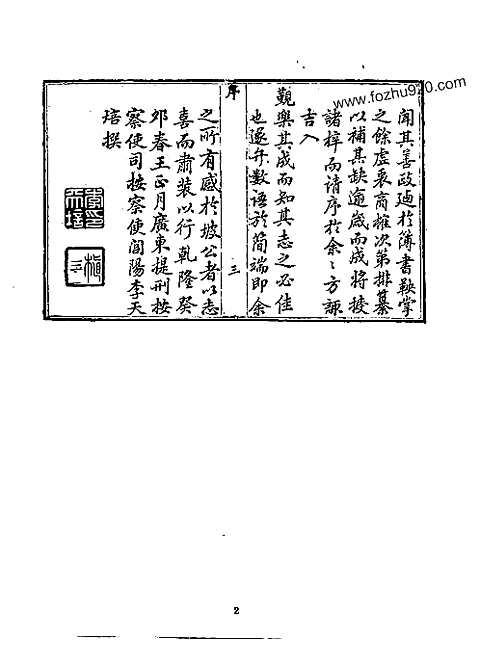 www.fozhu920.com
聞其善政廸於簿書鞅掌
之餘虛衷商榷次第排纂
以補其缺逾歲而成將授
諸梓而請序於余〻方諏
吉入
觀樂其成而知其志之必佳
也遂弁數語於簡端即余
序
三
之所有感於坡公者以志
喜而肅装以行乾隆癸
邜春王正月廣東提刑按
察使司按察使閭陽李天
培撰
2